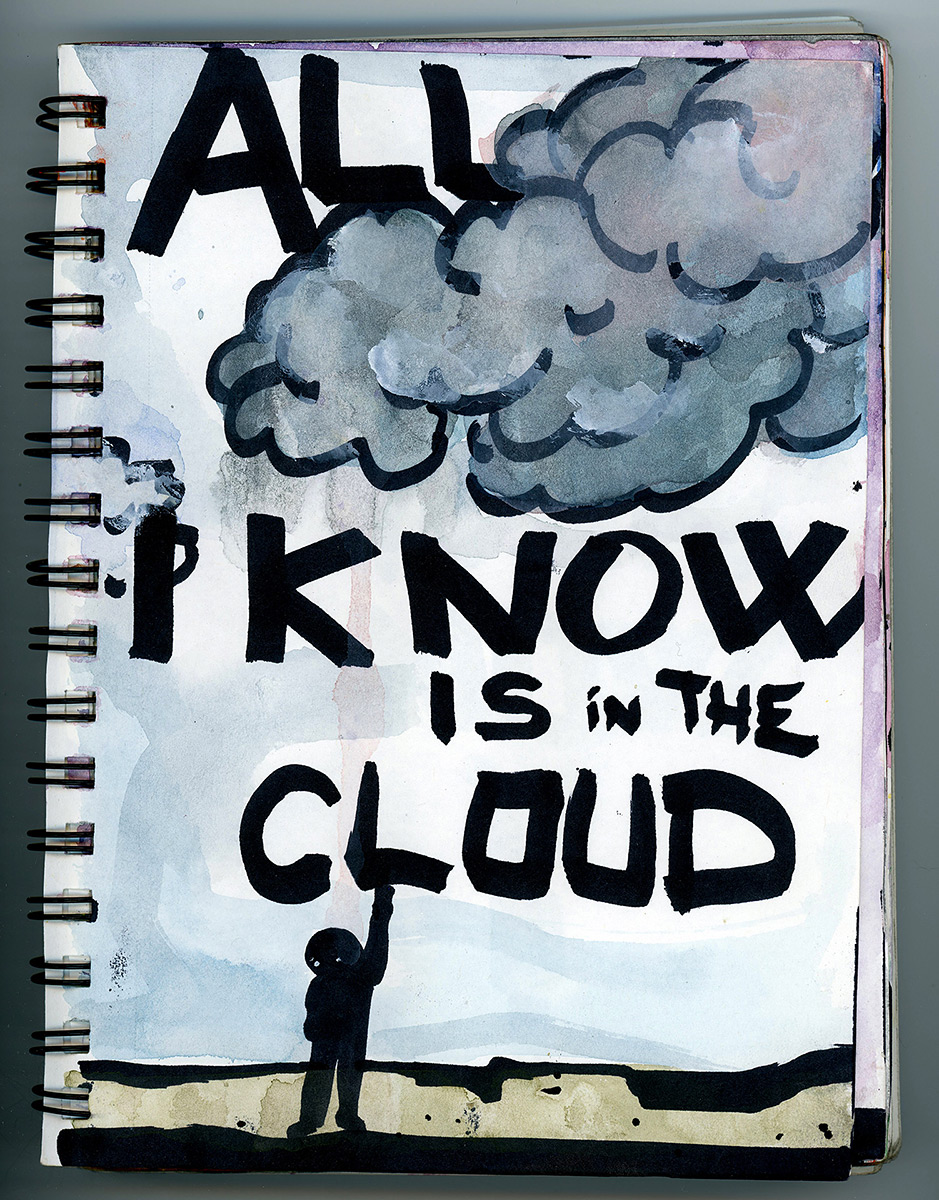 ALL
I KNOW
IS in THE
CLOUD